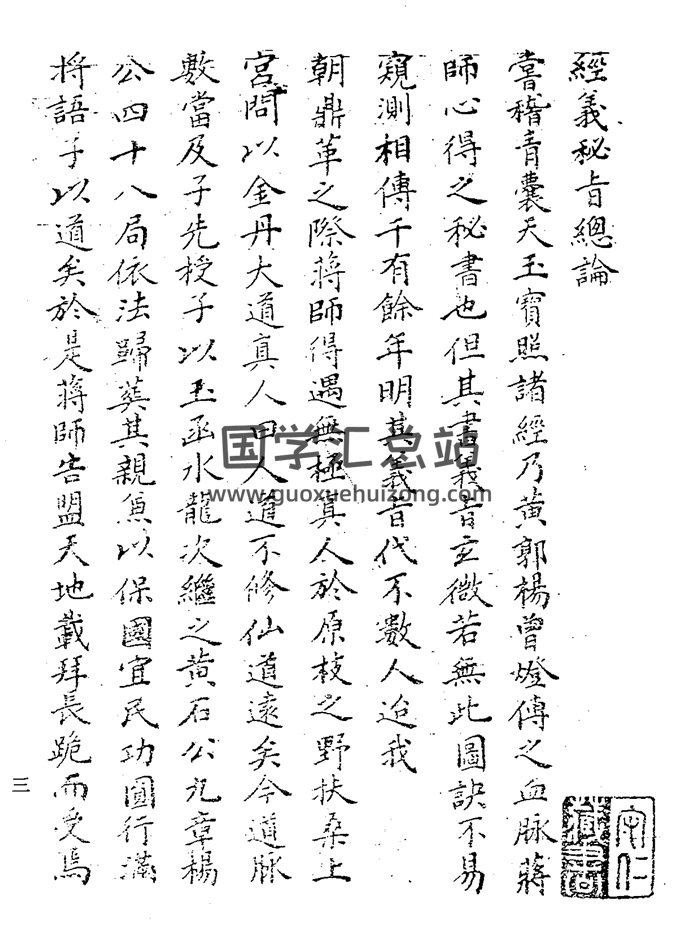 經義秘旨總論
嘗稽青囊天玉寶照諸經乃黃郭楊曾燈傳之血脉蔣
師心得之秘書也但其書義旨玄微若無此圖訣不易
窺測相傳千有餘年明其義旨代不數人迨我
朝鼎革之際蔣師得遇無極真人於原枝之野扶桑上
宮問以金丹大道真人曰人道不修仙道遠矣今道脉
數當及子先授子以玉函水龍次繼之黃石公九章楊
公四十八局依法歸葬其親兼以保國宜民功圓行滿
將語子以道矣於是蔣師告盟天地載拜長跪而受焉
三
守仁
藏書
国学汇总站
www.guoxuehuizong.com